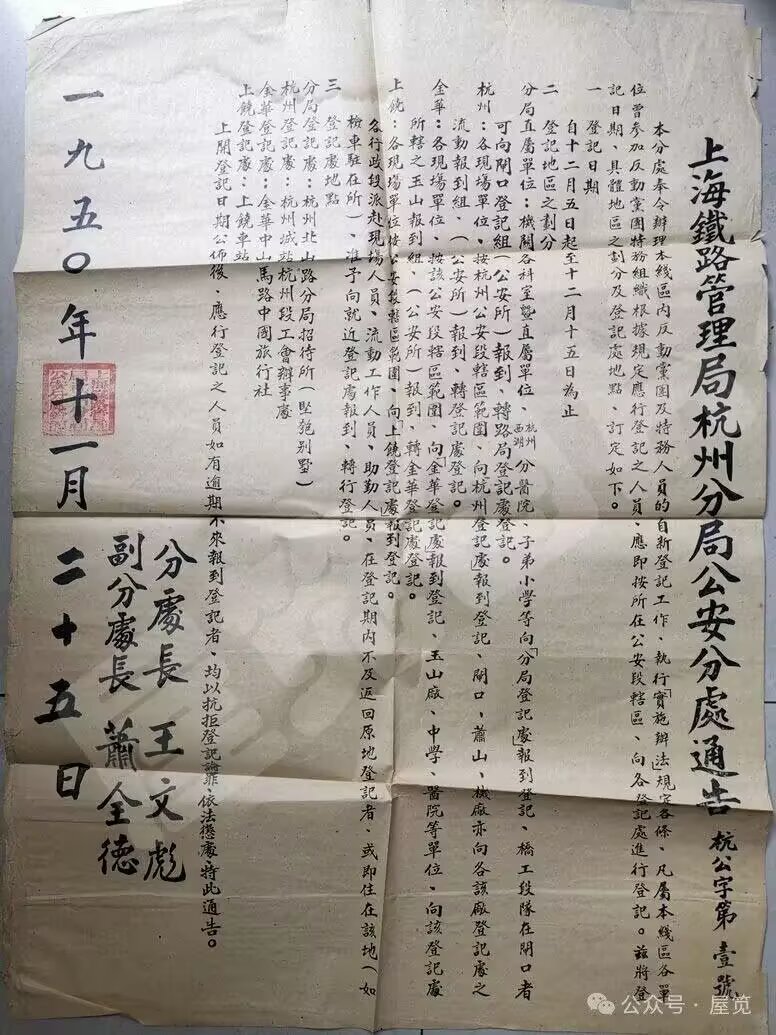 上海鐵路管理局杭州分局公安分處通告 杭公字第壹號
本分處奉令辦理本綫區内反動黨團及特務人員的自新登記工作、執行「實施辦法」規定各條、凡屬本綫區各單
位曾參加反動黨團特務組織根據規定應行登記之人員、應即按所在公安段轄區、向各登記處進行登記。兹將登
記日期、具體地區之劃分及登記處地點、訂定如下。
一 登記日期
自十二月五日起至十二月十五日為止
二 登記地區之劃分
分局直屬單位：機關各科室暨直屬單位、杭州西湖分醫院、子弟小學等向「分局登記處」報到登記、橋工段隊在閘口者
可向閘口登記組（公安所）報到、轉路局登記處登記。
杭州：各現場單位、按杭州公安段轄區範圍、向杭州登記處報到登記、閘口、蕭山、機廠亦向各該廠登記處之
流動報到組、（公安所）報到、轉登記處登記。
金華：各現場單位、按該公安段轄區範圍、向「金華登記處」報到登記、玉山廠、中學、醫院等單位、向該登記處
所轄之玉山報到組、（公安所）報到、轉金華登記處登記。
上饒：各現場單位按公安段轄區範圍、向「上饒登記處」報到登記。
各行政段派赴現場人員、流動工作人員、助勤人員、在登記期内不及返回原地登記者、或即住在該地（如
檢車駐在所）、准予向就近登記處報到、轉行登記。
三 登記處地點
分局登記處：杭州北山路分局招待所（堅匏别墅）
杭州登記處：杭州城站杭州段工會辦事處
金華登記處：金華中山馬路中國旅行社
上饒登記處：上饒車站
上開登記日期公佈後、應行登記之人員如有逾期不來報到登記者、均以抗拒登記論罪、依法懲處、特此通告。
分處長 王文彪
副分處長 蕭全德
一九五〇年十一月二十五日
公众号·屋览